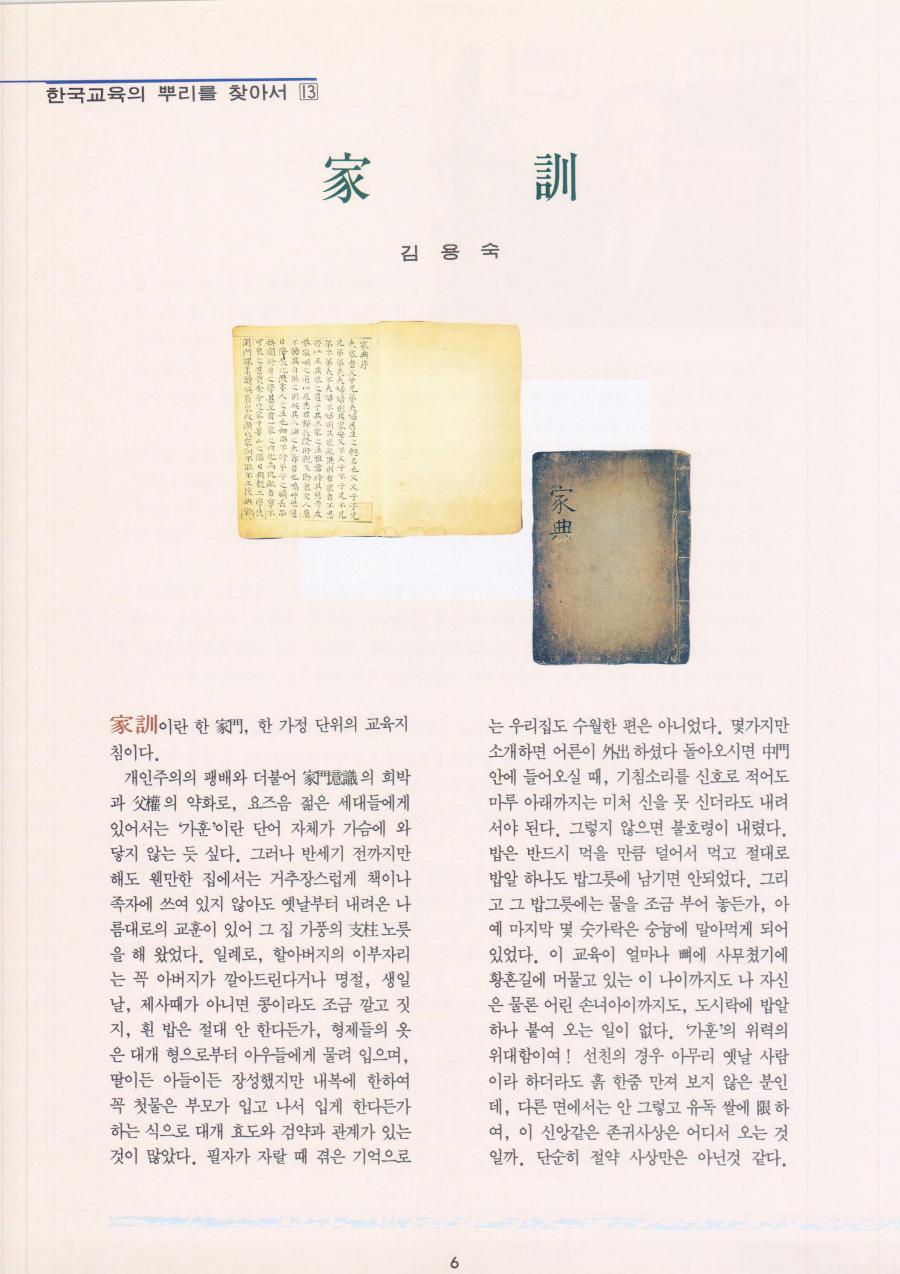 한국교육의 뿌리를 찾아서 13
家 訓
김 용 숙
家典序
家典
家訓이란 한 家門, 한 가정 단위의 교육지
침이다.
개인주의의 팽배와 더불어 家門意識의 희박
과 父權의 약화로, 요즈음 젊은 세대들에게
있어서는 '가훈'이란 단어 자체가 가슴에 와
닿지 않는 듯 싶다. 그러나 반세기 전까지만
해도 웬만한 집에서는 거추장스럽게 책이나
족자에 쓰여 있지 않아도 옛날부터 내려온 나
름대로의 교훈이 있어 그 집 가풍의 支柱노릇
을 해 왔었다. 일례로, 할아버지의 이부자리
는 꼭 아버지가 깔아드린다거나 명절, 생일
날, 제사때가 아니면 콩이라도 조금 깔고 짓
지, 흰 밥은 절대 안 한다든가, 형제들의 옷
은 대개 형으로부터 아우들에게 물려 입으며,
딸이든 아들이든 장성했지만 내복에 한하여
꼭 첫물은 부모가 입고 나서 입게 한다든가
하는 식으로 대개 효도와 검약과 관계가 있는
것이 많았다. 필자가 자랄 때 겪은 기억으로
는 우리집도 수월한 편은 아니었다. 몇가지만
소개하면 어른이 外出하셨다 돌아오시면 中門
안에 들어오실 때, 기침소리를 신호로 적어도
마루 아래까지는 미처 신을 못 신더라도 내려
서야 된다. 그렇지 않으면 불호령이 내렸다.
밥은 반드시 먹을 만큼 덜어서 먹고 절대로
밥알 하나도 밥그릇에 남기면 안되었다. 그리
고 그 밥그릇에는 물을 조금 부어 놓든가, 아
예 마지막 몇 숫가락은 숭늉에 말아먹게 되어
있었다. 이 교육이 얼마나 뼈에 사무쳤기에
황혼길에 머물고 있는 이 나이까지도 나 자신
은 물론 어린 손녀아이까지도, 도시락에 밥알
하나 붙여 오는 일이 없다. '가훈'의 위력의
위대함이여! 선친의 경우 아무리 옛날 사람
이라 하더라도 흙 한줌 만져 보지 않은 분인
데, 다른 면에서는 안 그렇고 유독 쌀에 限하
여, 이 신앙같은 존귀사상은 어디서 오는 것
일까. 단순히 절약 사상만은 아닌것 같다.
6